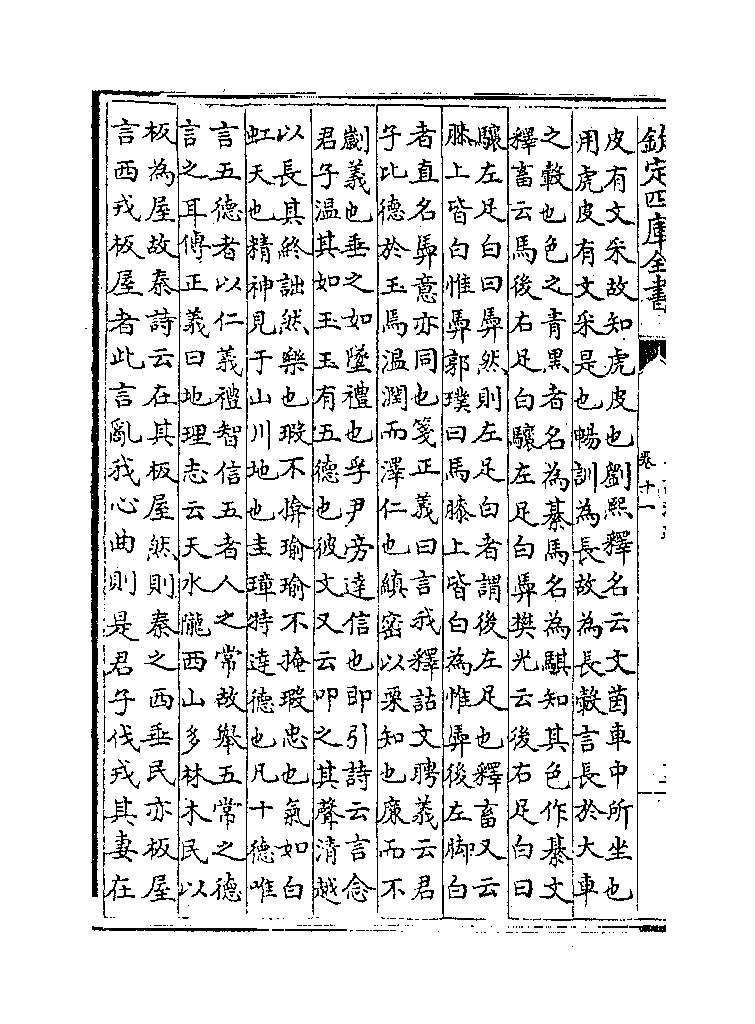 欽定四庫全書
卷十一
皮有文采故知虎皮也劉熙釋名云文茵車中所坐也
用虎皮有文采是也暢訓為長故為長轂言長於大車
之轂也色之青黑者名為綦馬名為騏知其色作綦文
釋畜云馬後右足白驤左足白馵樊光云後右足白曰
驤左足白曰馵然則左足白者謂後左足也釋畜又云
膝上皆白惟馵郭璞曰馬膝上皆白為惟馵後左脚白
者直名馵意亦同也箋正義曰言我釋詁文聘義云君
子比德於玉焉温潤而澤仁也縝密以栗知也廉而不
劌義也垂之如墜禮也孚尹旁達信也即引詩云言念
君子温其如玉玉有五德也彼文又云叩之其聲清越
以長其終詘然樂也瑕不揜瑜瑜不掩瑕忠也氣如白
虹天也精神見于山川地也圭璋特達德也凡十德唯
言五德者以仁義禮智信五者人之常故舉五常之德
言之耳傅正義曰地理志云天水隴西山多林木民以
板為屋故秦詩云在其板屋然則秦之西垂民亦板屋
言西戎板屋者此言亂我心曲則是君子伐戎其妻在